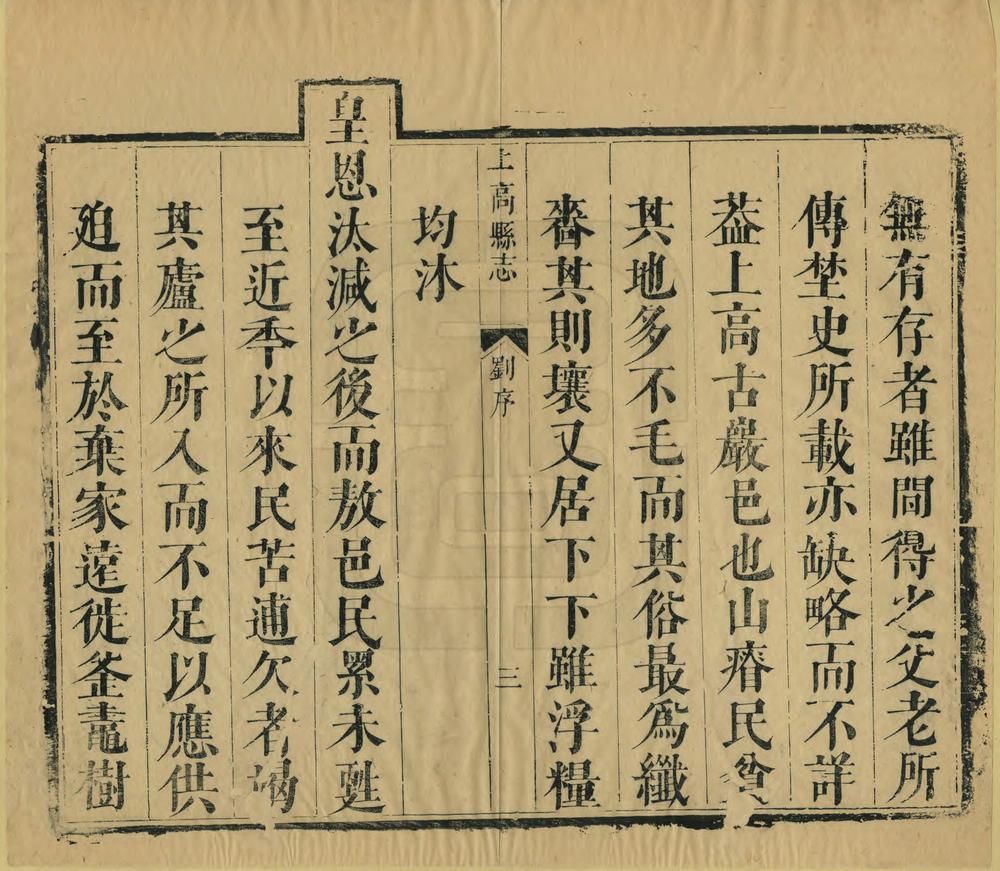 無有存者雖間得之父老所
傳埜史所載亦缺略而不詳
葢上高古巖邑也山瘠民貧
其地多不毛而其俗最為纖
嗇其則壤又居下下雖浮糧
均沐
上高縣志 劉序 三
皇恩汰減之後而敖邑民累未甦
至近季以來民苦逋欠者竭
其廬之所入而不足以應供
廹而至於棄家遠徙釜鼃樹